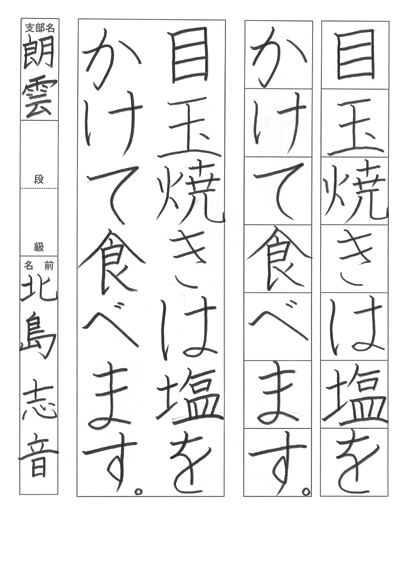 目玉焼きは塩を
かけて食べます。
目玉焼きは塩を
かけて食べます。
支部名
朗雲
段
級
名前
北島志音